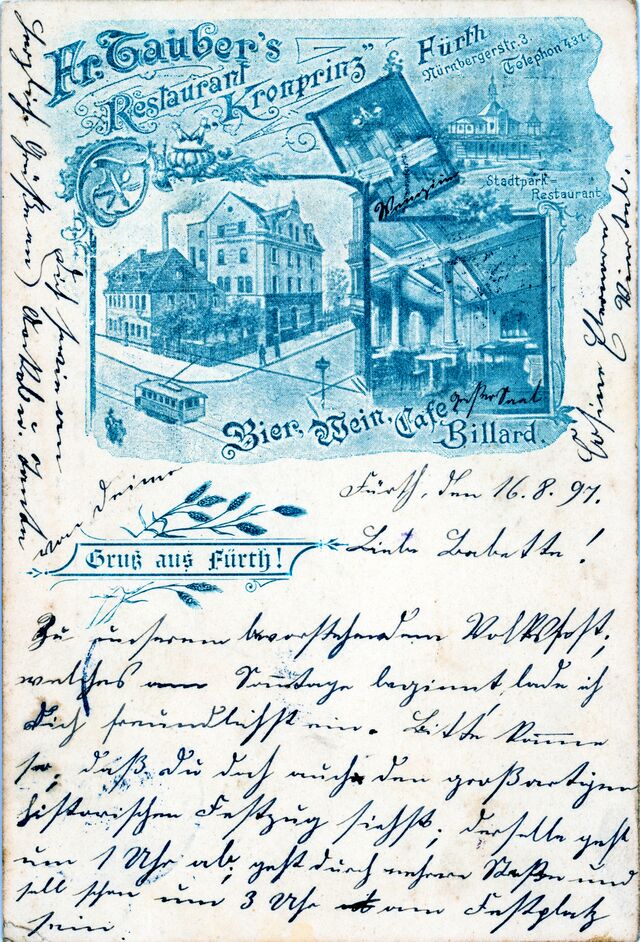 Fr. Tauber's
Restaurant
"Kronprinz"
Fürth
Nürnbergerstr. 3.
Telephon 437.
Stadtpark-
Restaurant
Weinzim
großer Saal
Bier, Wein, Cafe
Billard.
Gruß aus Fürth!
Fürth, den 16. 8. 97.
Liebe Babette!
Zu unserem bevorstehendem Volksfest,
welches am Sonntage beginnt, lade ich
Dich freundlichst ein. Bitte komme
so, daß du doch auch den großartigen
historischen Festzug siehst; derselbe geht
um 1 Uhr ab, geht durch mehrere Straße und
soll schon um 3 Uhr am Festplatz
sein.
Herzliche Grüße an
Dich sowie an
von Deiner